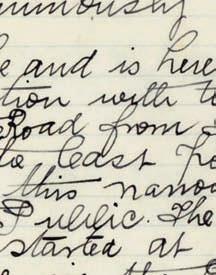 e and is here
tion with t
Road from
le least fo
this narrow
Public. The
started at